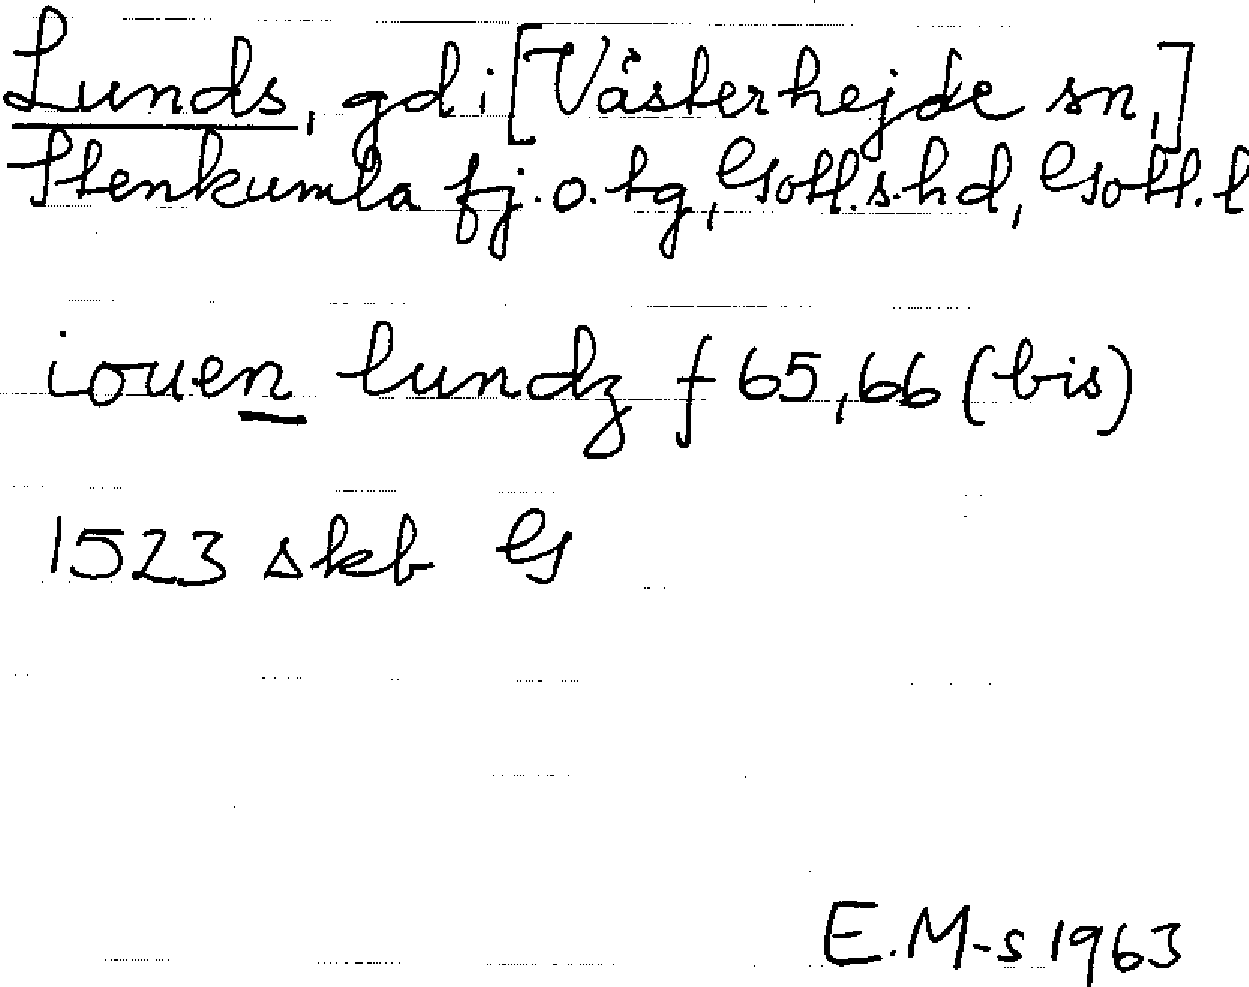 Lunds, gd i [Västerhejde sn,]
Stenkumla fj. o. tg, Gotl. s. hd, Gotl. l
iouen lundz f 65, 66 (bis)
1523 skb G
E. M-s 1963